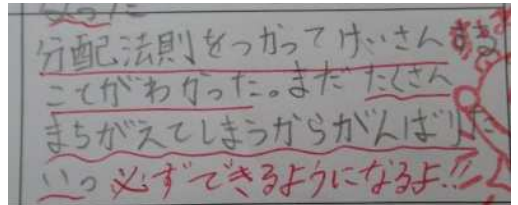 分配法則をつかってけいさん する
ことがわかった。まだたくさん
まちがえてしまうからがんばりた
い。必ずできるようになるよ!!